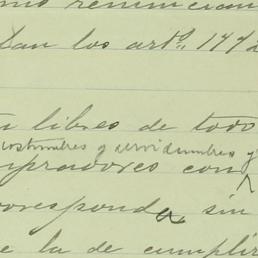 mo renuncian
tan los artº. 1772
n libres de todo
costumbres y servidumbres y
mpradores con
orresponda sin
e la de cumplir